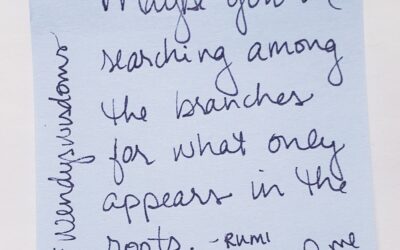 Maybe you're
searching among
the branches
for what only
appears in the
roots. -RUMI
wendyswisdoms